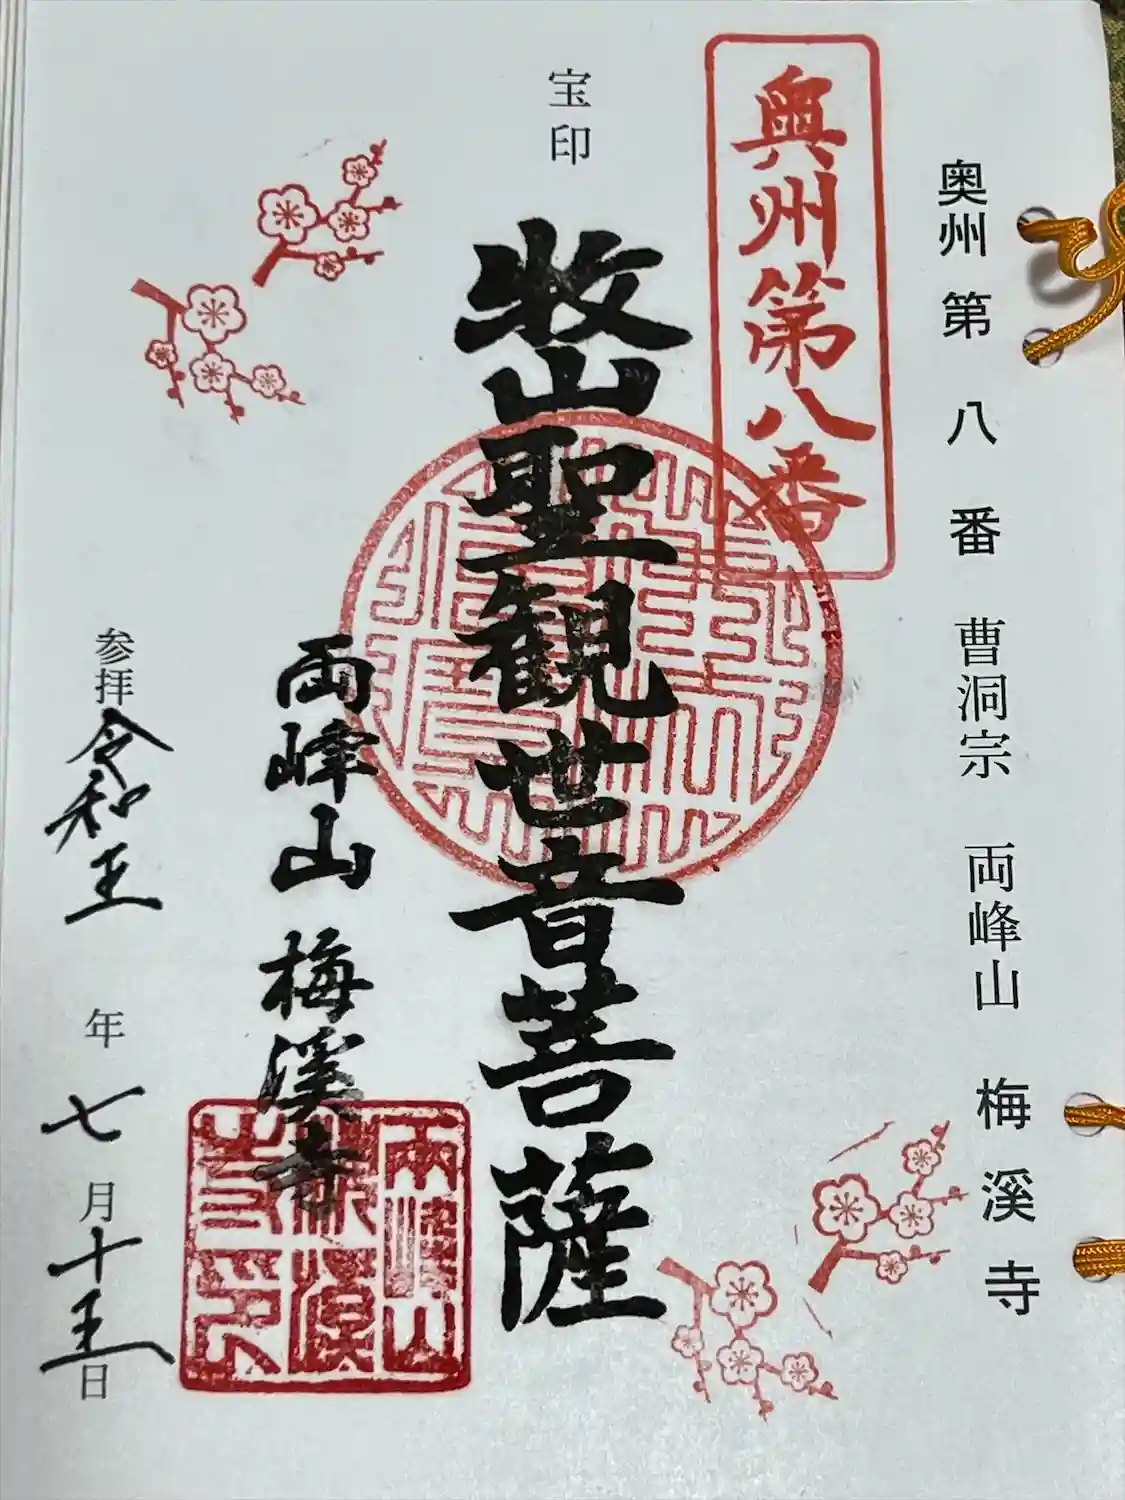 奥州第八番 曹洞宗 両峰山 梅溪寺
奥州第八番
宝印
牧山聖観世音菩薩
両峰山 梅溪寺
両峰山
梅溪
寺印
参拝 令和五年七月十五日